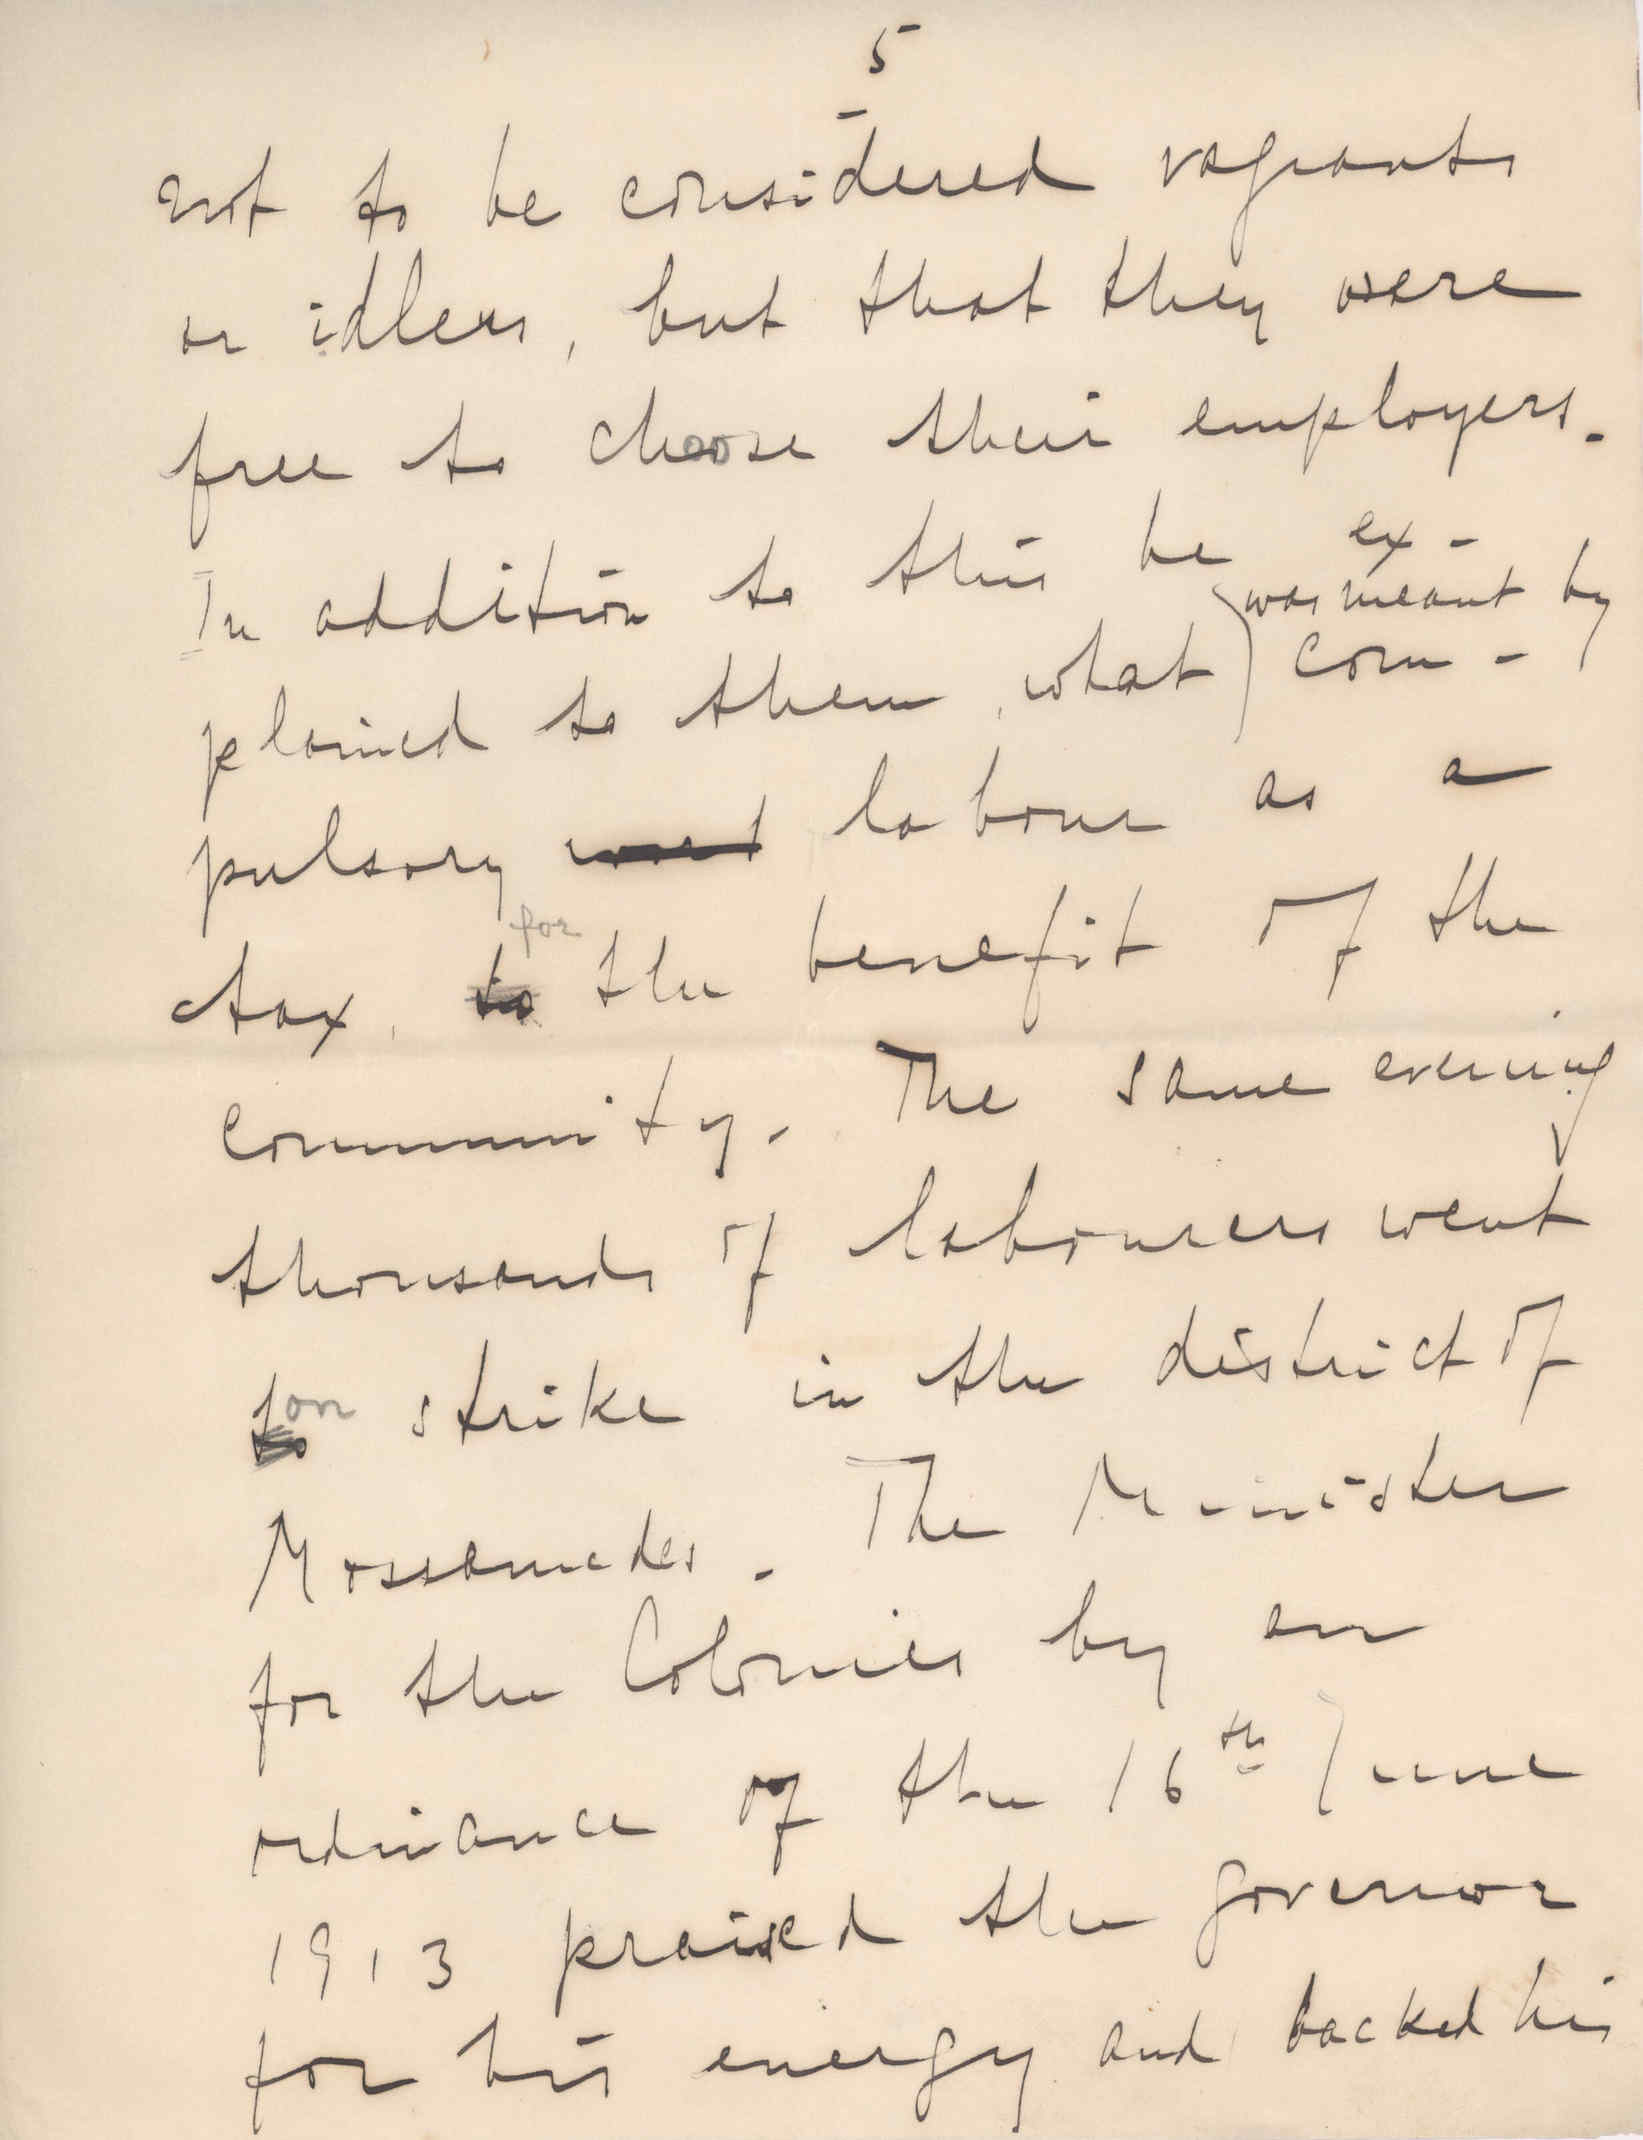 5
not to be considered vagrants
or idlers, but that they were
free to choose their employers.
In addition to this he ex-
was meant by
plained to them, what com-
pulsory labour as a
for
tax, to the benefit of the
community. The same evening
thousands of labourers went
to on strike in the district of
Mossamedes. The Minister
for the Colonies by an
ordinance of the 16th June
1913 praised the governor
for his energy and backed his